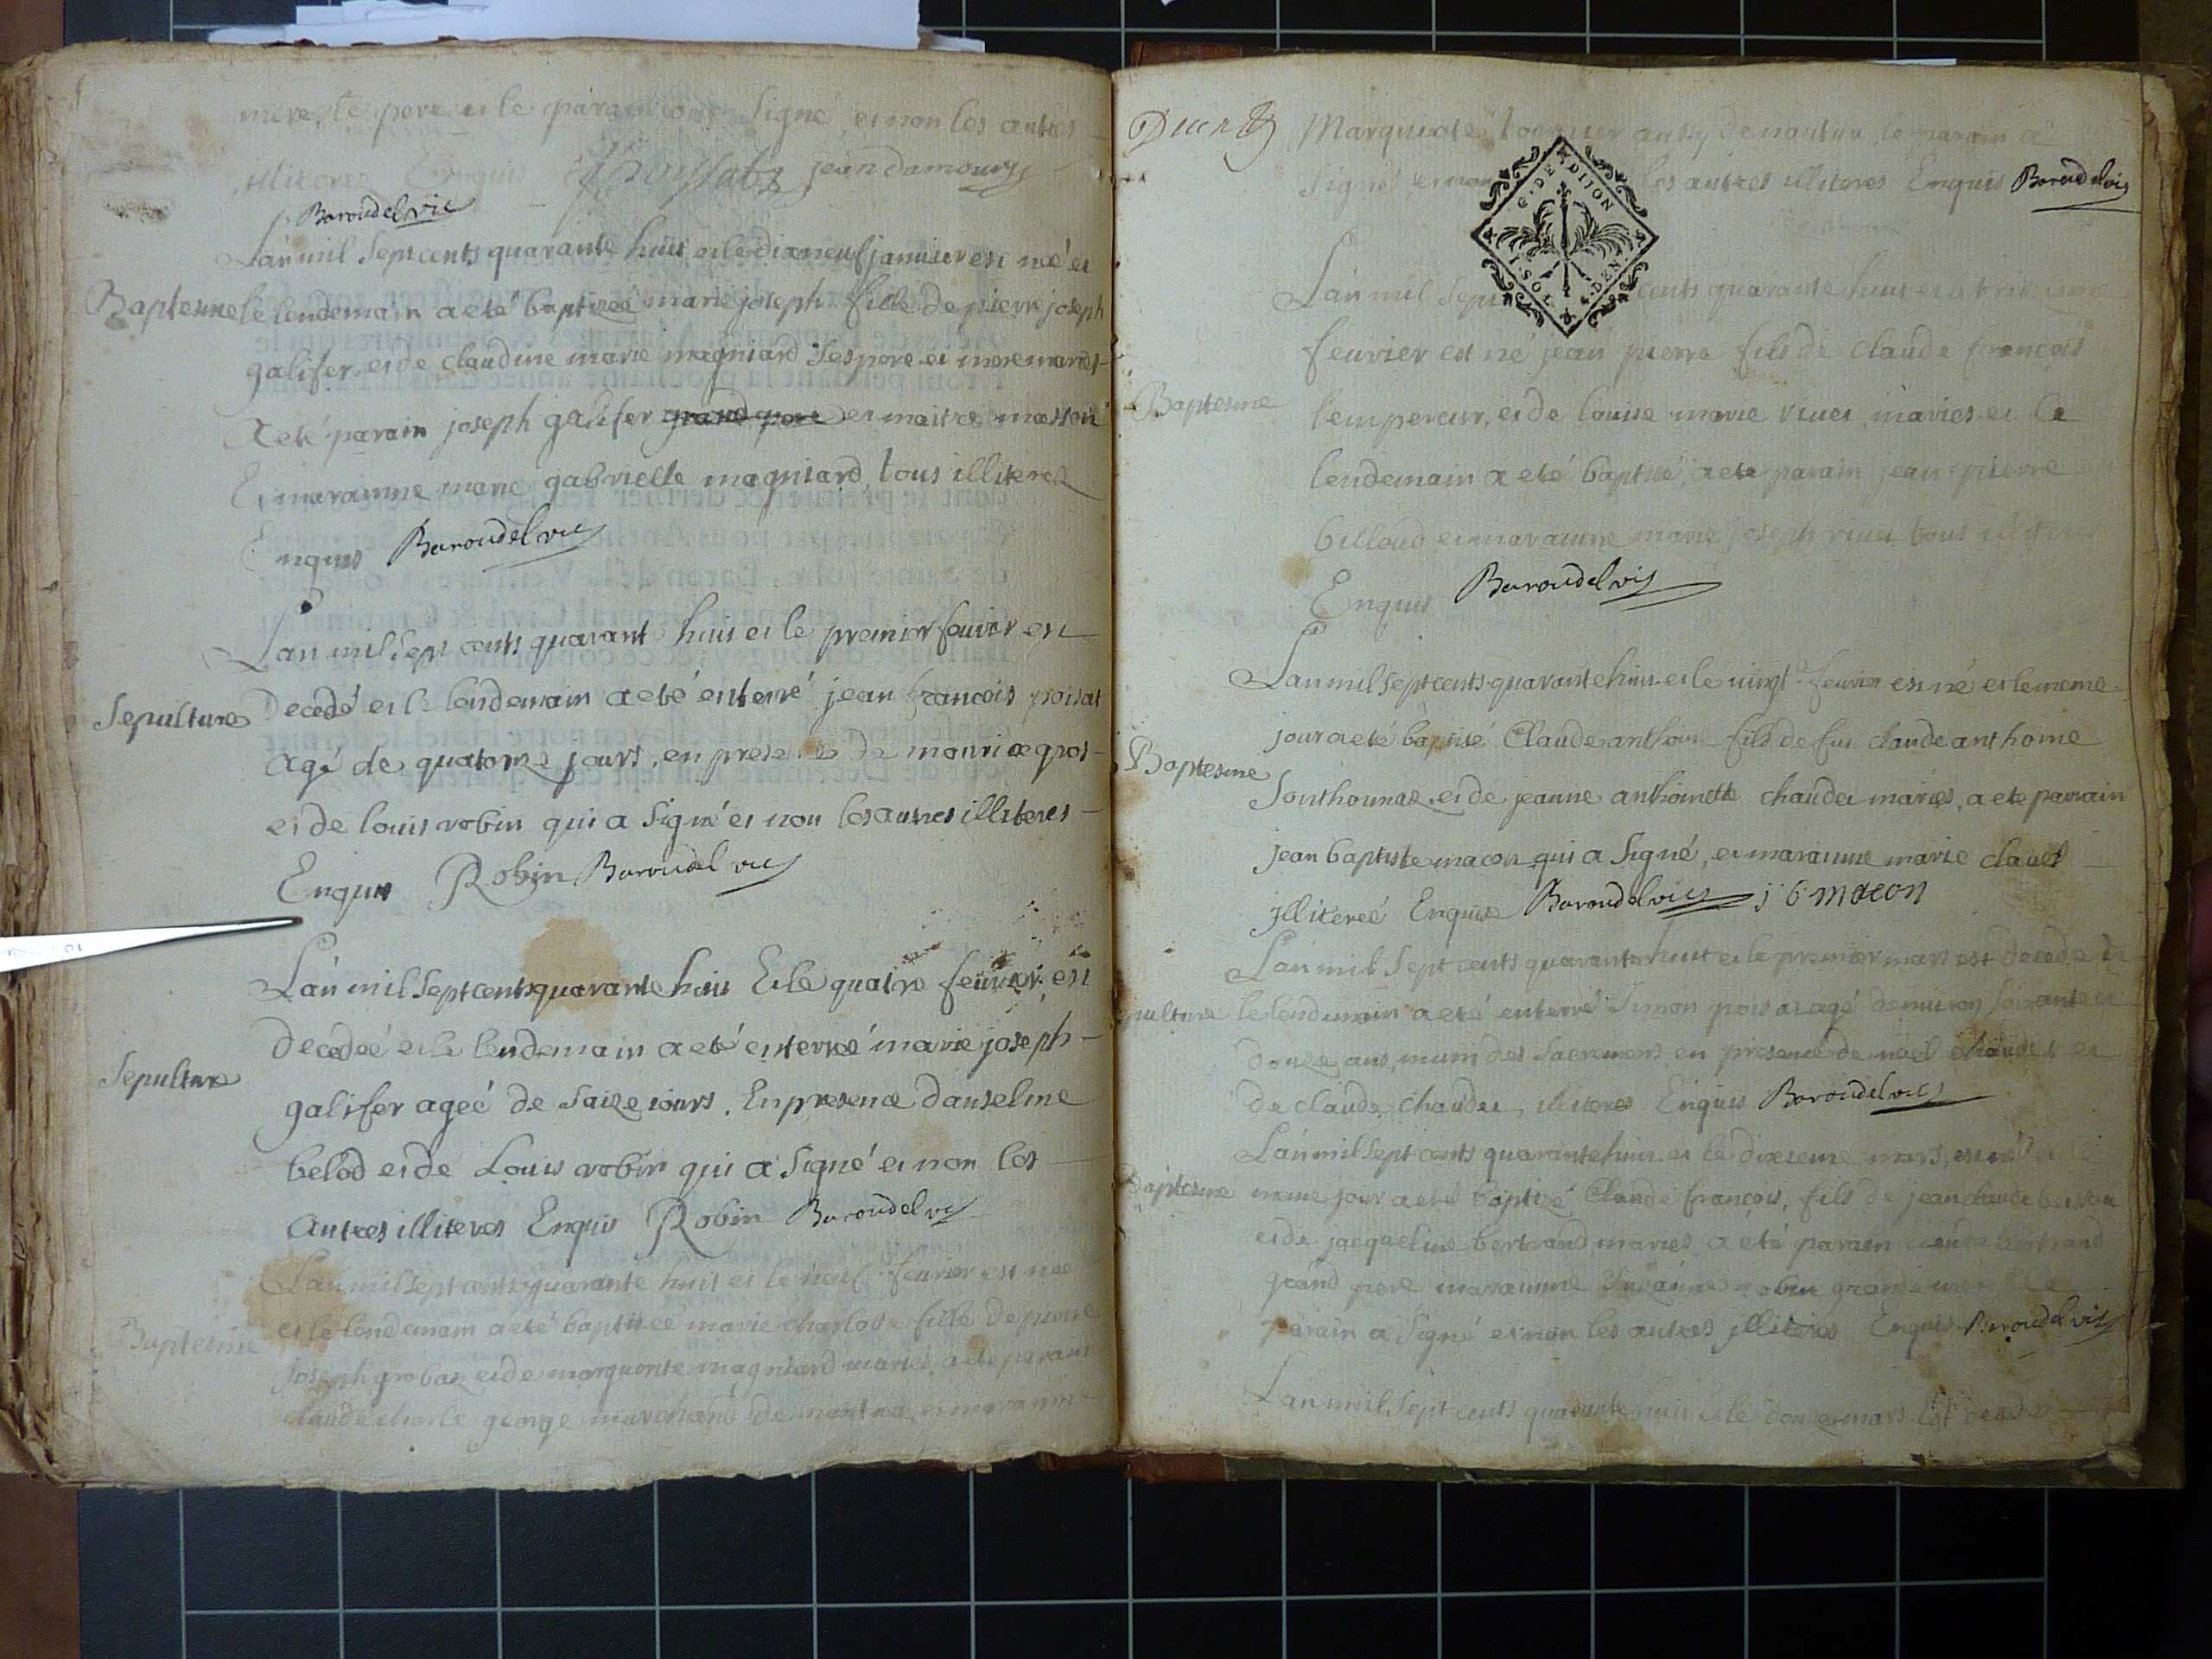 mere, le pere et le parain ont signé, et non les autres
illiteres Enquis jean damours
Baroudel vic
Lan mil sept cents quarante huit et le dixneuf janvier est née et
Baptesme le lendemain a eté baptizeé marie joseph fille de pierre joseph
galifer et de claudine marie magniard ses pere et mere mariés
a eté parain joseph galifer grand pere et maitre masson
Et marainne marie gabrielle magniard tous illiteres
Enquis Baroudel vic
Lan mil sept cents quarant huit et le premier fevrier est
Sepulture decedé et le lendemain a eté enterré jean francois poisat
agé de quatorze jours, en presence de maurice gros
et de louis robin qui a signé et non les autres illiteres
Enquis Robin Baroudel vic
Lan mil sept cents quarante huit Et le quatre feuvrier est
decedeé et le lendemain a eté enterreé marie joseph
Sepulture
galifer ageé de saize jours. En presence danselme
belod et de Louis robin qui a signé et non les
autres illiteres Enquis Robin Baroudel vic
Lan mil sept cents quarante huit et le neuf feuvrier est née
Baptesme et le lendemain a eté baptiseé marie charlote fille de pierre
joseph grobas et de marguerite magniard mariés, a eté parain
claude charle george marchand de nantua, et maraine
Marguerite aussy de nantua le parain a
signé et non les autres illiteres Enquis Baroudel vic
G. DE DIJON
SOL DEN.
Lan mil sept cents quarante huit et le
feuvrier est né jean pierre fils de claude francois
Baptesme lempereur, et de louise marie vuet mariés et le
lendemain a eté baptisé, a eté parain jean pierre
billoud et maraine marie joseph vuet tous illiteres
Enquis Baroudel vic
Lan mil sept cents quarante huit et le vingt feuvrier est né et le meme
jour a eté baptisé Claude anthoine fils de feu claude anthoine
Baptesme
Sonthonnaz et de jeanne anthoinette chaudet mariés, a eté parain
jean baptiste macon qui a signé, et maraine marie claudet
illitereé Enquise Baroudel vic j b macon
Lan mil sept cents quarante huit et le premier mars est decedé et
pulture le lendemain a eté enterré Simon poisat agé denviron soixante et
douze ans, muni des sacremens en presence de noel chaudet et
de claude chaudet, illiteres Enquis Baroudel vic
Lan mil sept cents quarante huit et le dixieme mars, est né et
Baptesme meme jour a eté baptizé Claude francois, fils de jean claude
et de jacqueline bertrand mariés a eté parain bertrand
grand pere maraine Suzanne robin grand mere
parain a signé et non les autres illiteres Enquis Baroudel vic
Lan mil sept cents quarante huit et le douze mars est decedé